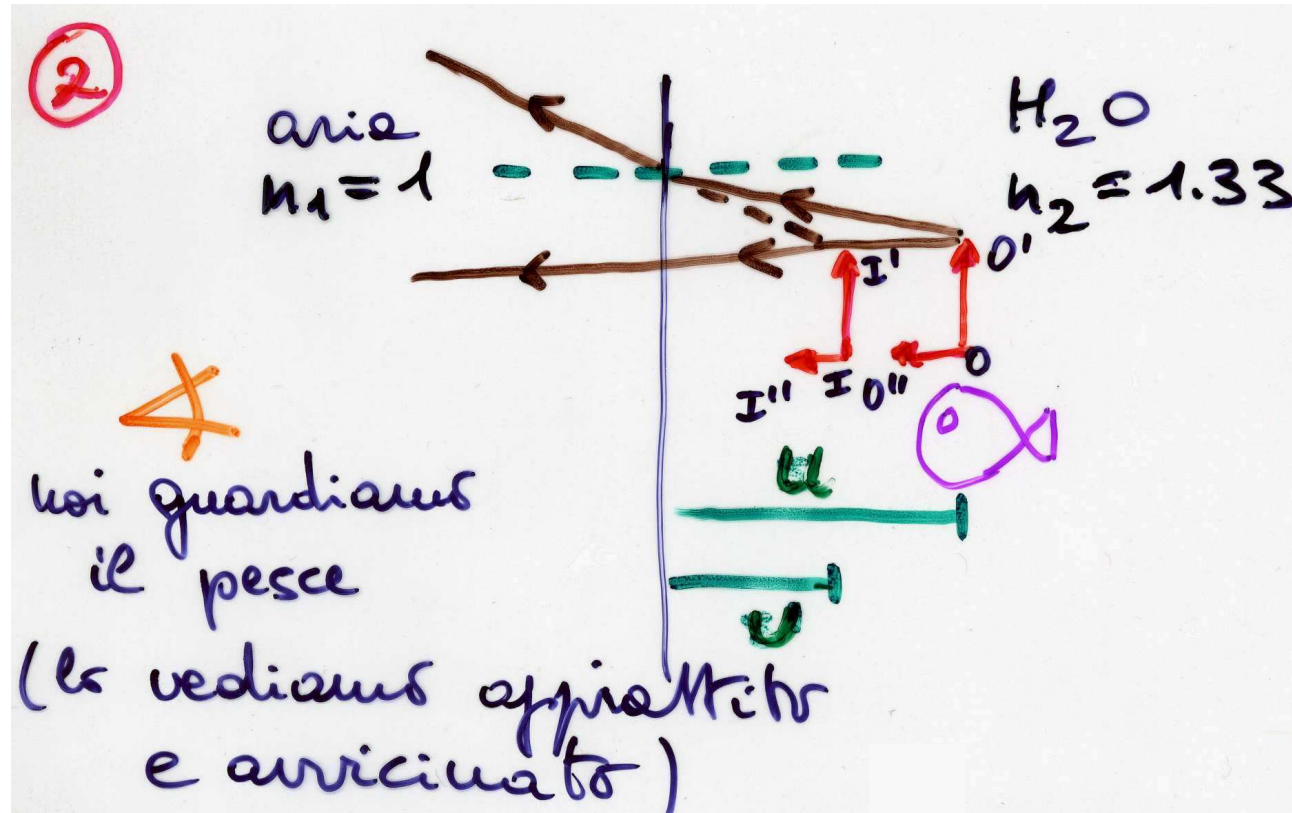 2
aria
n₁ = 1
H₂O
n₂ = 1.33
O'
I'
I''
I
O''
O
u
v
noi guardiamo
il pesce
(lo vediamo appiattito
e avvicinato)